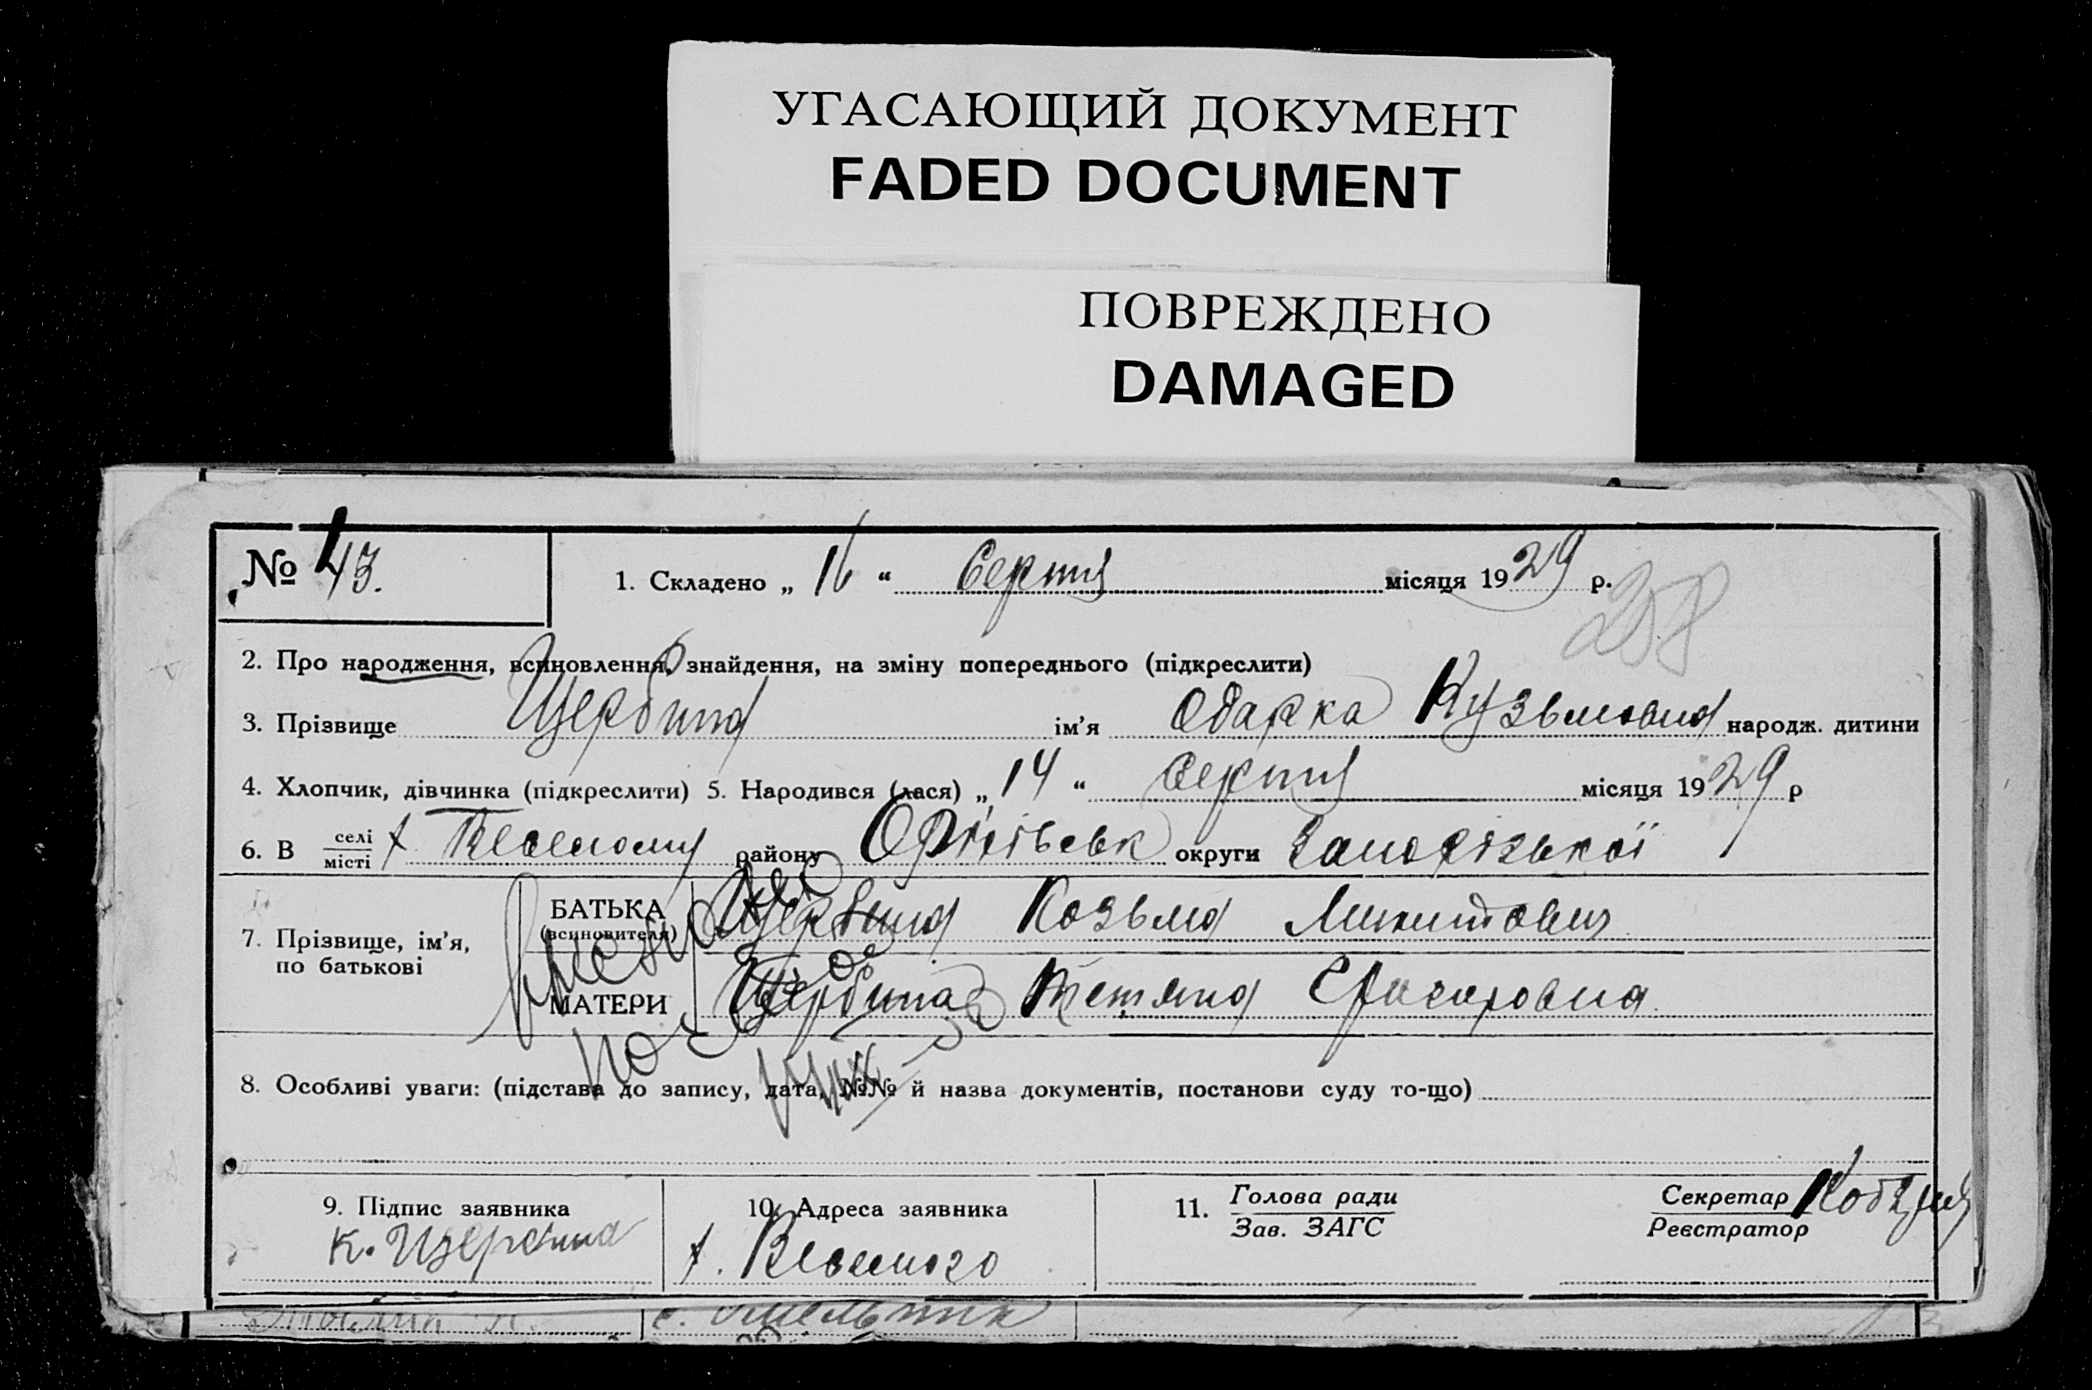 УГАСАЮЩИЙ ДОКУМЕНТ
FADED DOCUMENT
ПОВРЕЖДЕНО
DAMAGED
№ 43.
1. Складено „ 16 “ Серпня місяця 1929 р.
258
2. Про народження, всиновлення, знайдення, на зміну попереднього (підкреслити)
3. Прізвище Щербина ім’я Одарка Кузьмовна народж. дитини
4. Хлопчик, дівчинка (підкреслити) 5. Народився (лася) „ 14 “ Серпня місяця 1929 р
6. В селі місті х. Веселому району Оріхівськ округи Запорізької
7. Прізвище, ім’я, по батькові
БАТЬКА (всиновителя) Щербина Козьма Микитович
МАТЕРИ Щербина Тетяна
8. Особливі уваги: (підстава до запису, дата, №№ й назва документів, постанови суду то-що)
9. Підпис заявника
К. Щербина
10. Адреса заявника
х. Веселого
11. Голова ради
Зав. ЗАГС
Секретар
Реєстратор
с. Омельник